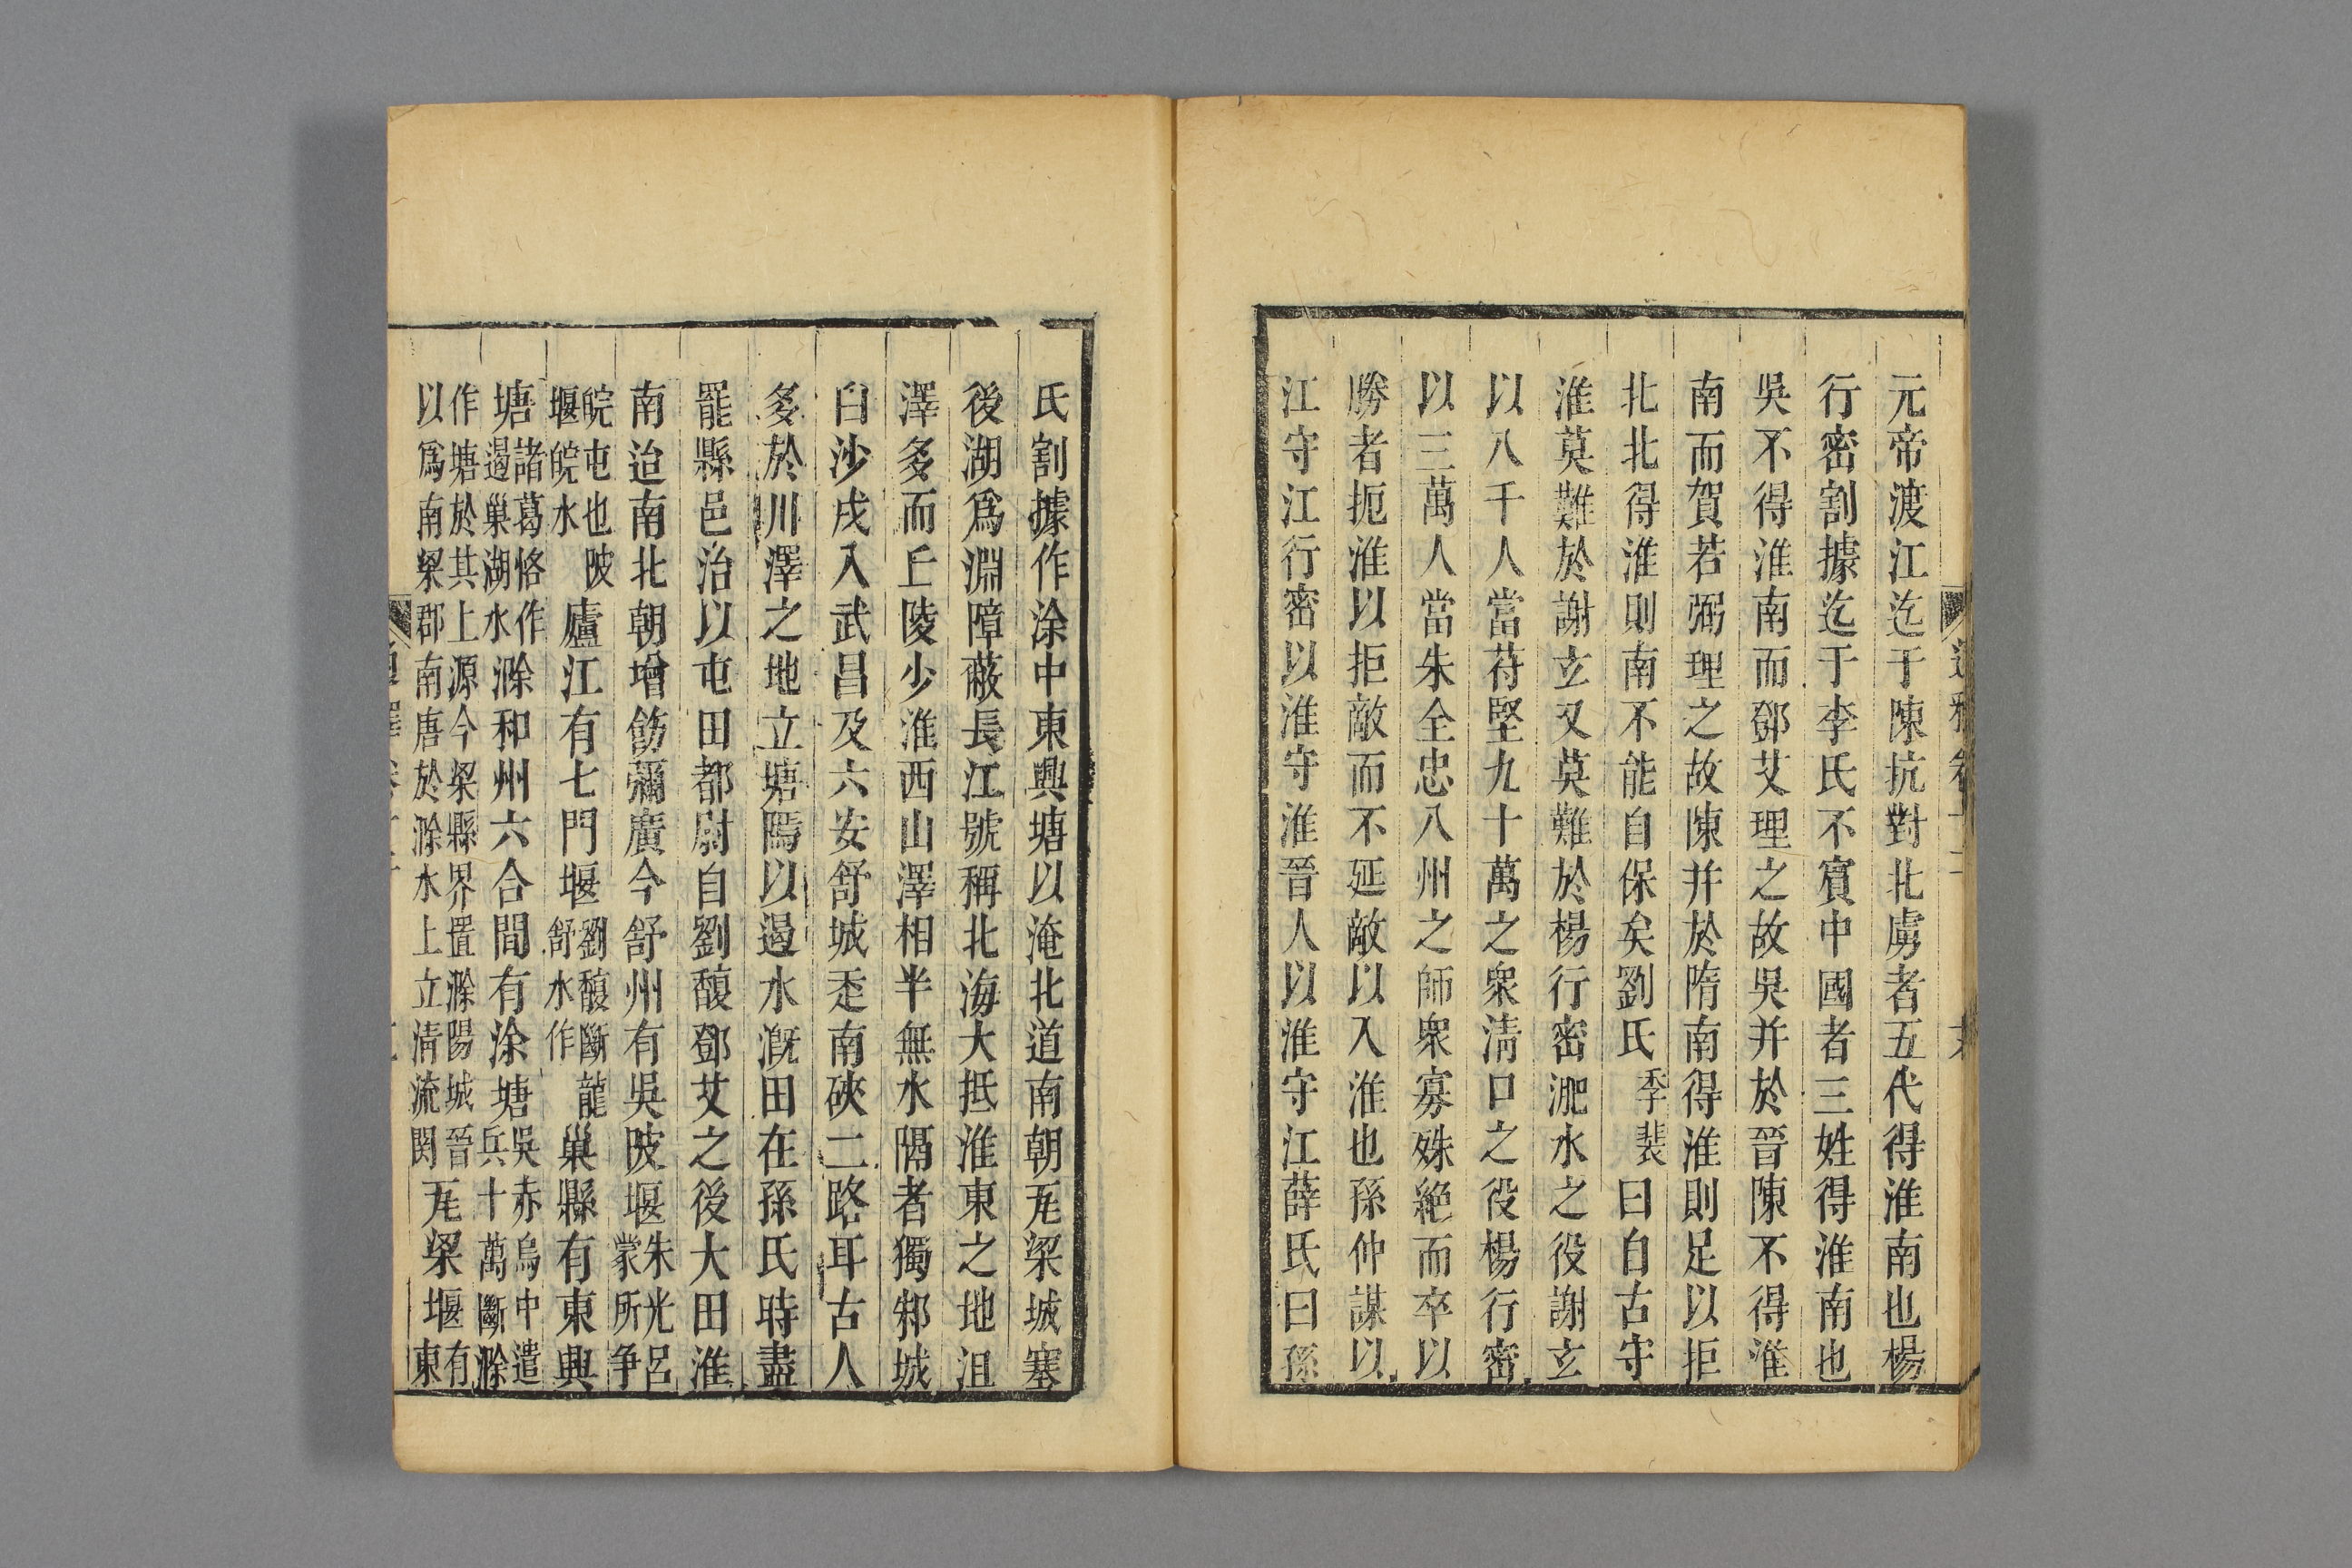 元帝渡江迄于陳抗對北虜者五代得淮南也楊
行密割據迄于李氏不賓中國者三姓得淮南也
吳不得淮南而鄧艾理之故吳并於晉陳不得淮
南而賀若弼理之故陳并於隋南得淮則足以拒
北北得淮則南不能自保矣劉氏季裴曰自古守
淮莫難於謝玄又莫難於楊行密淝水之役謝玄
以八千人當苻堅九十萬之衆淸口之役楊行密
以三萬人當朱全忠八州之師衆寡殊絕而卒以
勝者扼淮以拒敵而不延敵以入淮也孫仲謀以
江守江行密以淮守淮晉人以淮守江薛氏曰孫
氏割據作涂中東興塘以淹北道南朝瓦梁城塞
後湖爲淵障蔽長江號稱北海大抵淮東之地沮
澤多而丘陵少淮西山澤相半無水隔者獨邾城
白沙戍入武昌及六安舒城走南硤二路耳古人
多於川澤之地立塘隖以遏水溉田在孫氏時盡
罷縣邑治以屯田都尉自劉馥鄧艾之後大田淮
南迨南北朝增飭彌廣今舒州有吳陂堰朱光呂
蒙所争
皖屯也陂
堰皖水廬江有七門堰劉馥斷龍
舒水作巢縣有東興
塘諸葛恪作
遏巢湖水滁和州六合間有涂塘吳赤烏中遣
兵十萬斷滁
作塘於其上源今梁縣界置滁陽城晉
以爲南梁郡南唐於滁水上立淸流関瓦梁堰有
東